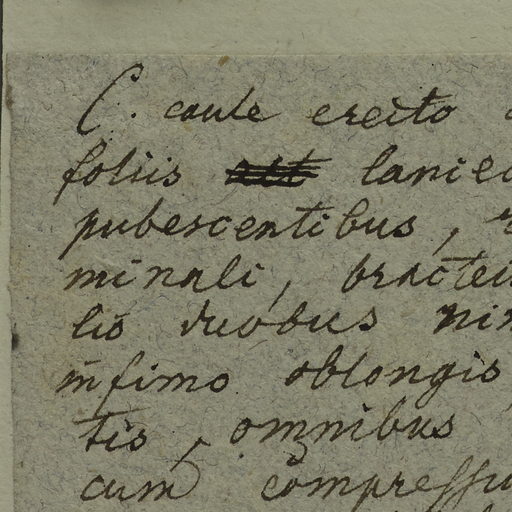 C. caule erecto
foliis lanceo
pubescentibus,
minali, bractei
lio duobus nin
infimo oblongis
tis, omnibus
cum compressu